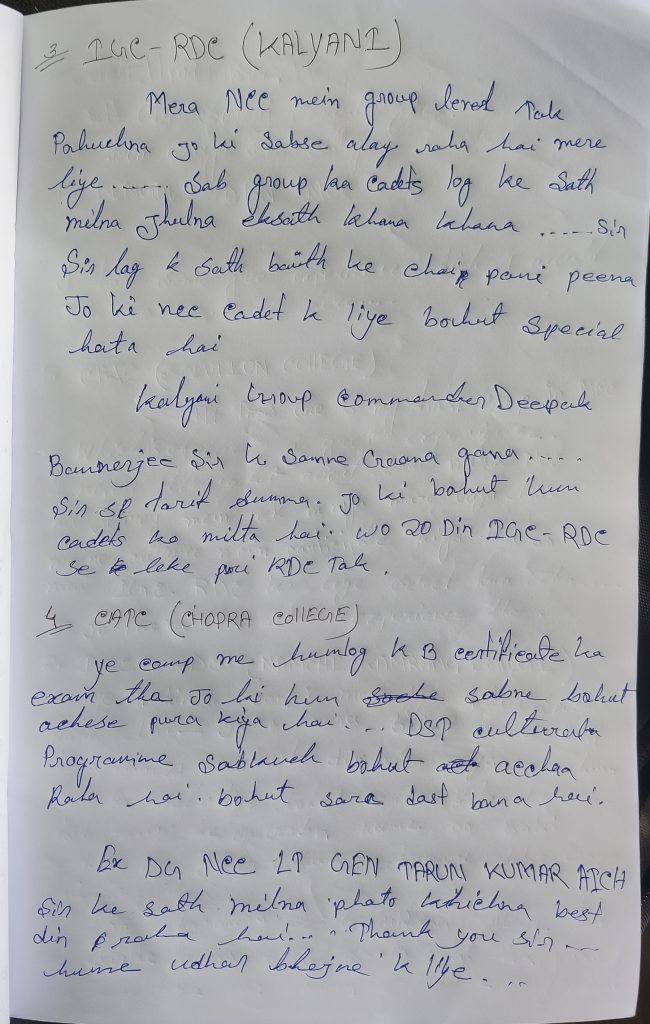 3 IGC-RDC (KALYANI)
Mera NCC mein group level Tak
Pahuchna jo ki sabse alag raha hai mere
liye...... Sab group ka Cadets log ke Sath
milna Jhulna eksath khana khana ..... Sir
Sir log k sath baith ke chai pani peena
Jo ki ncc Cadet k liye bohut Special
hota hai
Kalyani Group Commander Deepak
Bannerjee Sir k Samne Gaana gana.....
Sir se tarif sunna. Jo ki bahut kum
cadets ko milta hai. wo 20 Din IGC-RDC
se leke puri RDC Tak.
4 CATC (CHOPRA COllEGE)
ye camp me humlog k B certificate ka
exam tha Jo ki hum sabne bohut
achese pura kiya hai... DSP
Programme sabkuch bohut acchaa
Raha hai. bohut sara dost bana hai.
Ex DG NCC LT GEN TARUN KUMAR AICH
Sir ke sath milna photo khichna best
din raha hai... Thank you sir ...
hume udhar bhejne k liye. ..